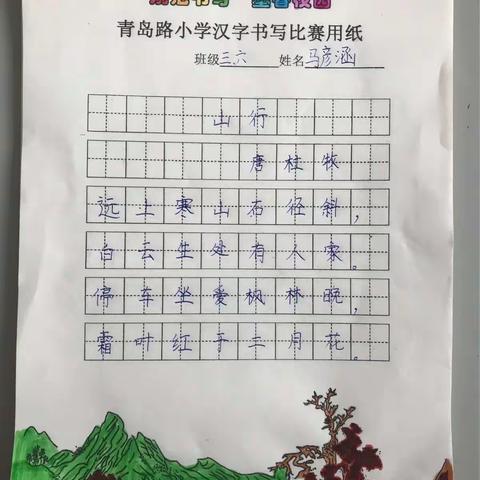 青岛路小学汉字书写比赛用纸
班级三六 姓名马彦涵
山行
唐杜牧
远上寒山石径斜，
白云生处有人家。
停车坐爱枫林晚，
霜叶红于二月花。